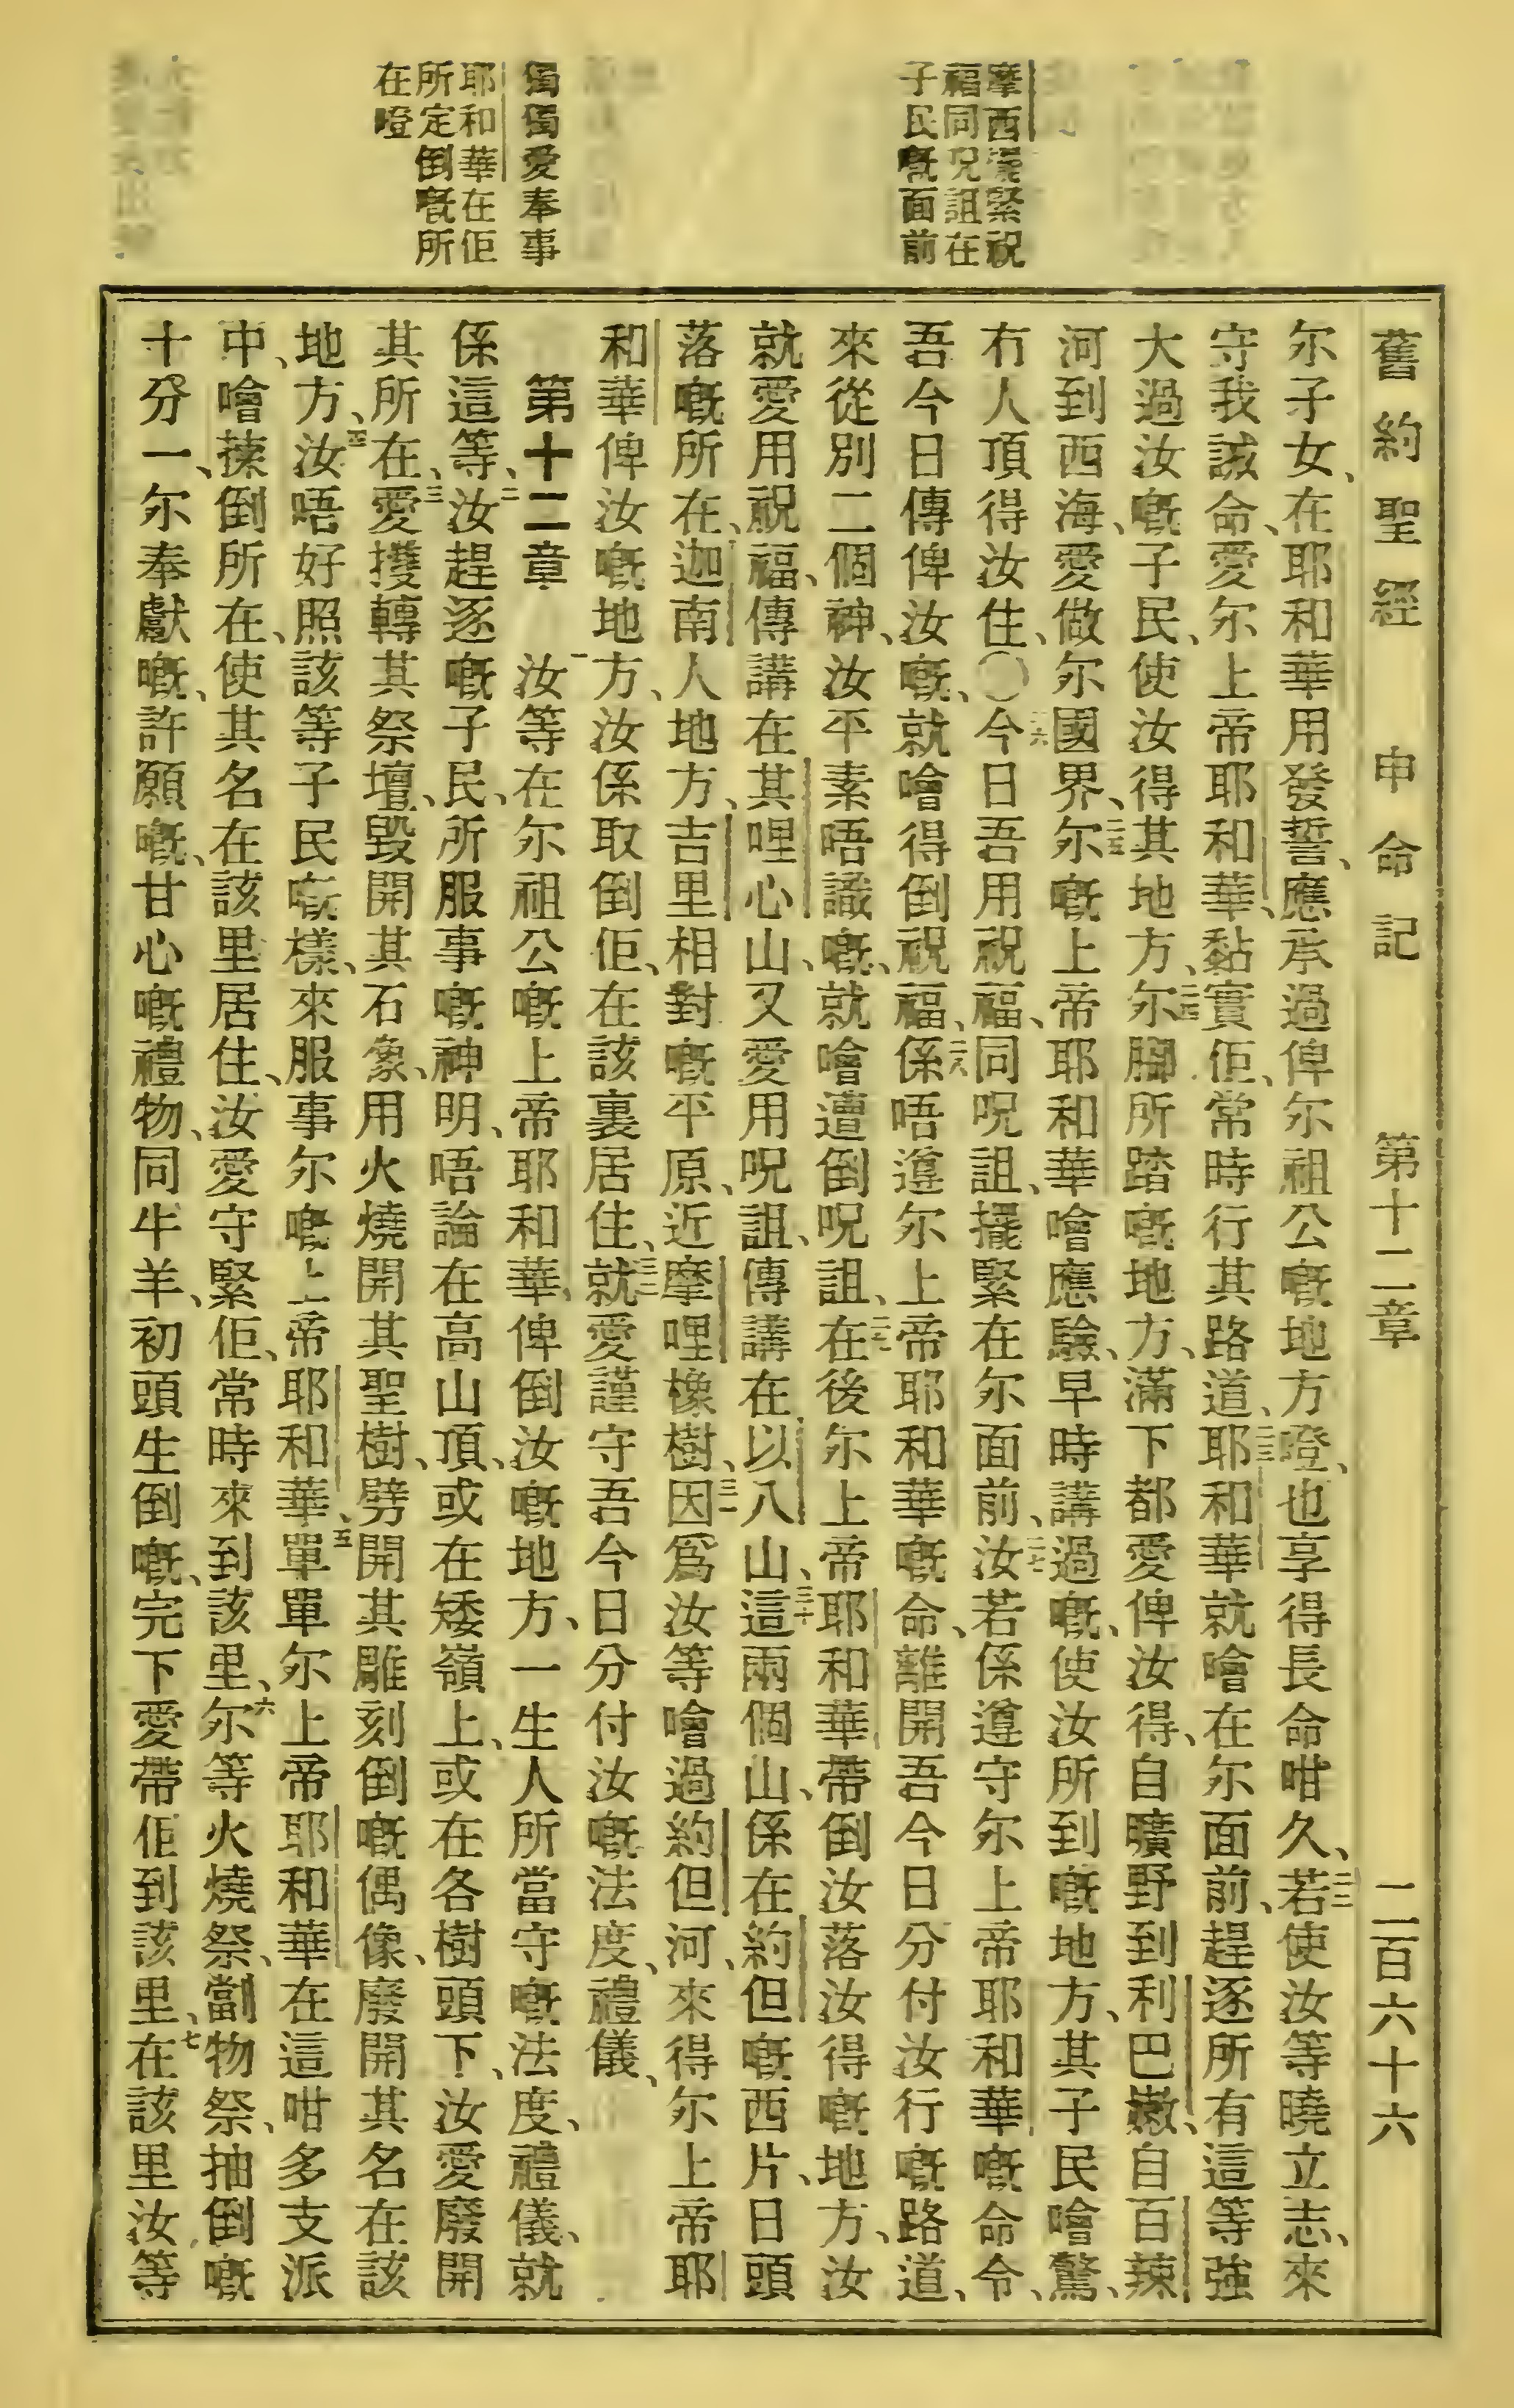 舊約聖經　申命記　第十二章　二百六十六
摩西擺緊祝
福同呪詛在
子民嘅面前
獨獨愛奉事
耶和華在佢
所定倒嘅所
在噔
尔子女、在耶和華用發誓、應承過俾尔祖公嘅地方噔、也享得長命咁久、二二若使汝等曉立志、來
守我誡命、愛尔上帝耶和華、黏實佢、常時行其路道、二三耶和華就噲在尔面前、趕逐所有這等強
大過汝嘅子民、使汝得其地方、二四尔脚所踏嘅地方、滿下都愛俾汝得、自曠野到利巴嫩、自百辣
河到西海、愛做尔國界、二五尔嘅上帝耶和華噲應驗、早時講過嘅、使汝所到嘅地方、其子民噲驚、
冇人頂得汝住、〇二六今日吾用祝福、同呪詛、擺緊在尔面前、二七汝若係遵守尔上帝耶和華嘅命令、
吾今日傳俾汝嘅、就噲得倒祝福、二八係唔遵尔上帝耶和華嘅命、離開吾今日分付汝行嘅路道、
來從別二個神、汝平素唔識嘅、就噲遭倒呪詛、二九在後尔上帝耶和華帶倒汝落汝得嘅地方、汝
就愛用祝福、傳講在其哩心山、又愛用呪詛、傳講在以八山、三十這兩個山、係在約但嘅西片、日頭
落嘅所在、迦南人地方、吉里相對嘅平原、近摩哩橡樹、三一因爲汝等噲過約但河、來得尔上帝耶
和華俾汝嘅地方、汝係取倒佢、在該裏居住、三二就愛謹守吾今日分付汝嘅法度、禮儀、
第十二章　一汝等在尔祖公嘅上帝耶和華、俾倒汝嘅地方、一生人所當守嘅法度、禮儀、就
係這等、二汝趕逐嘅子民、所服事嘅神明、唔論在高山頂、或在矮嶺上、或在各樹頭下、汝愛廢開
其所在、三愛㨯轉其祭壇、毀開其石像、用火燒開其聖樹、劈開其雕刻倒嘅偶像、廢開其名在該
地方、四汝唔好照該等子民嘅樣、來服事尔嘅上帝耶和華、五單單尔上帝耶和華在這咁多支派
中、噲揀倒所在、使其名在該里居住、汝愛守緊佢、常時來到該里、六尔等火燒祭、劏物祭、抽倒嘅
十分一、尔奉獻嘅、許願嘅、甘心嘅禮物、同牛羊、初頭生倒嘅、完下愛帶佢到該里、七在該里汝等